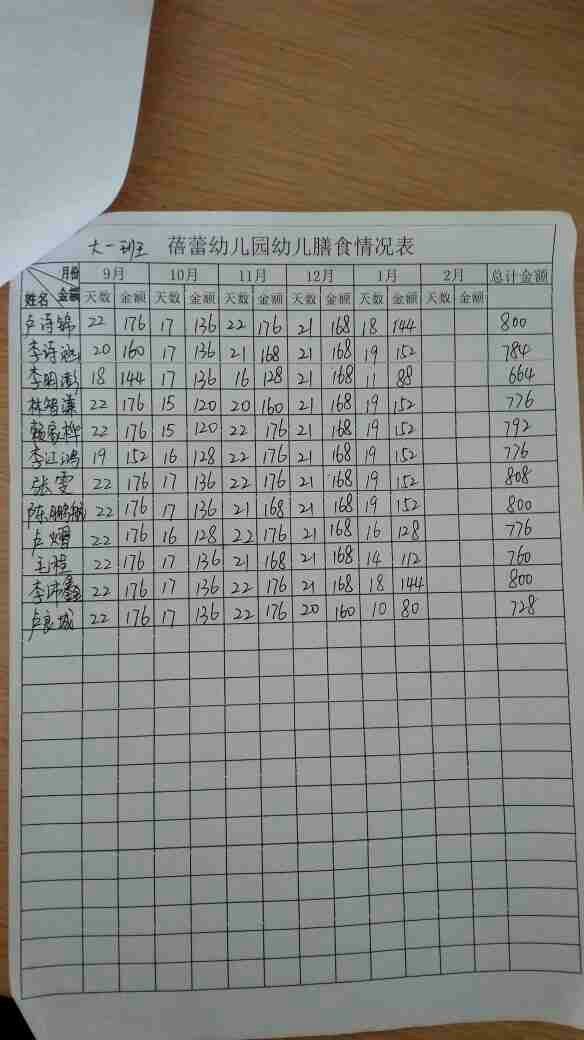 大一班 蓓蕾幼儿园幼儿膳食情况表
月份 9月 10月 11月 12月 1月 2月 总计金额
姓名 金额 天数 金额 天数 金额 天数 金额 天数 金额 天数 金额 天数 金额
卢诗锦 22 176 17 136 22 176 21 168 18 144 800
李诗涵 20 160 17 136 21 168 21 168 19 152 784
李明澎 18 144 17 136 16 128 21 168 11 88 664
林智潇 22 176 15 120 20 160 21 168 19 152 776
赖家桦 22 176 15 120 22 176 21 168 19 152 792
李江鸿 19 152 16 128 22 176 21 168 19 152 776
张雯 22 176 17 136 22 176 21 168 19 152 808
陈鹏 22 176 17 136 21 168 21 168 19 152 800
卢熠 22 176 16 128 22 176 21 168 16 128 776
王程 22 176 17 136 21 168 21 168 14 112 760
李沛鑫 22 176 17 136 22 176 21 168 18 144 800
卢良城 22 176 17 136 22 176 20 160 10 80 728